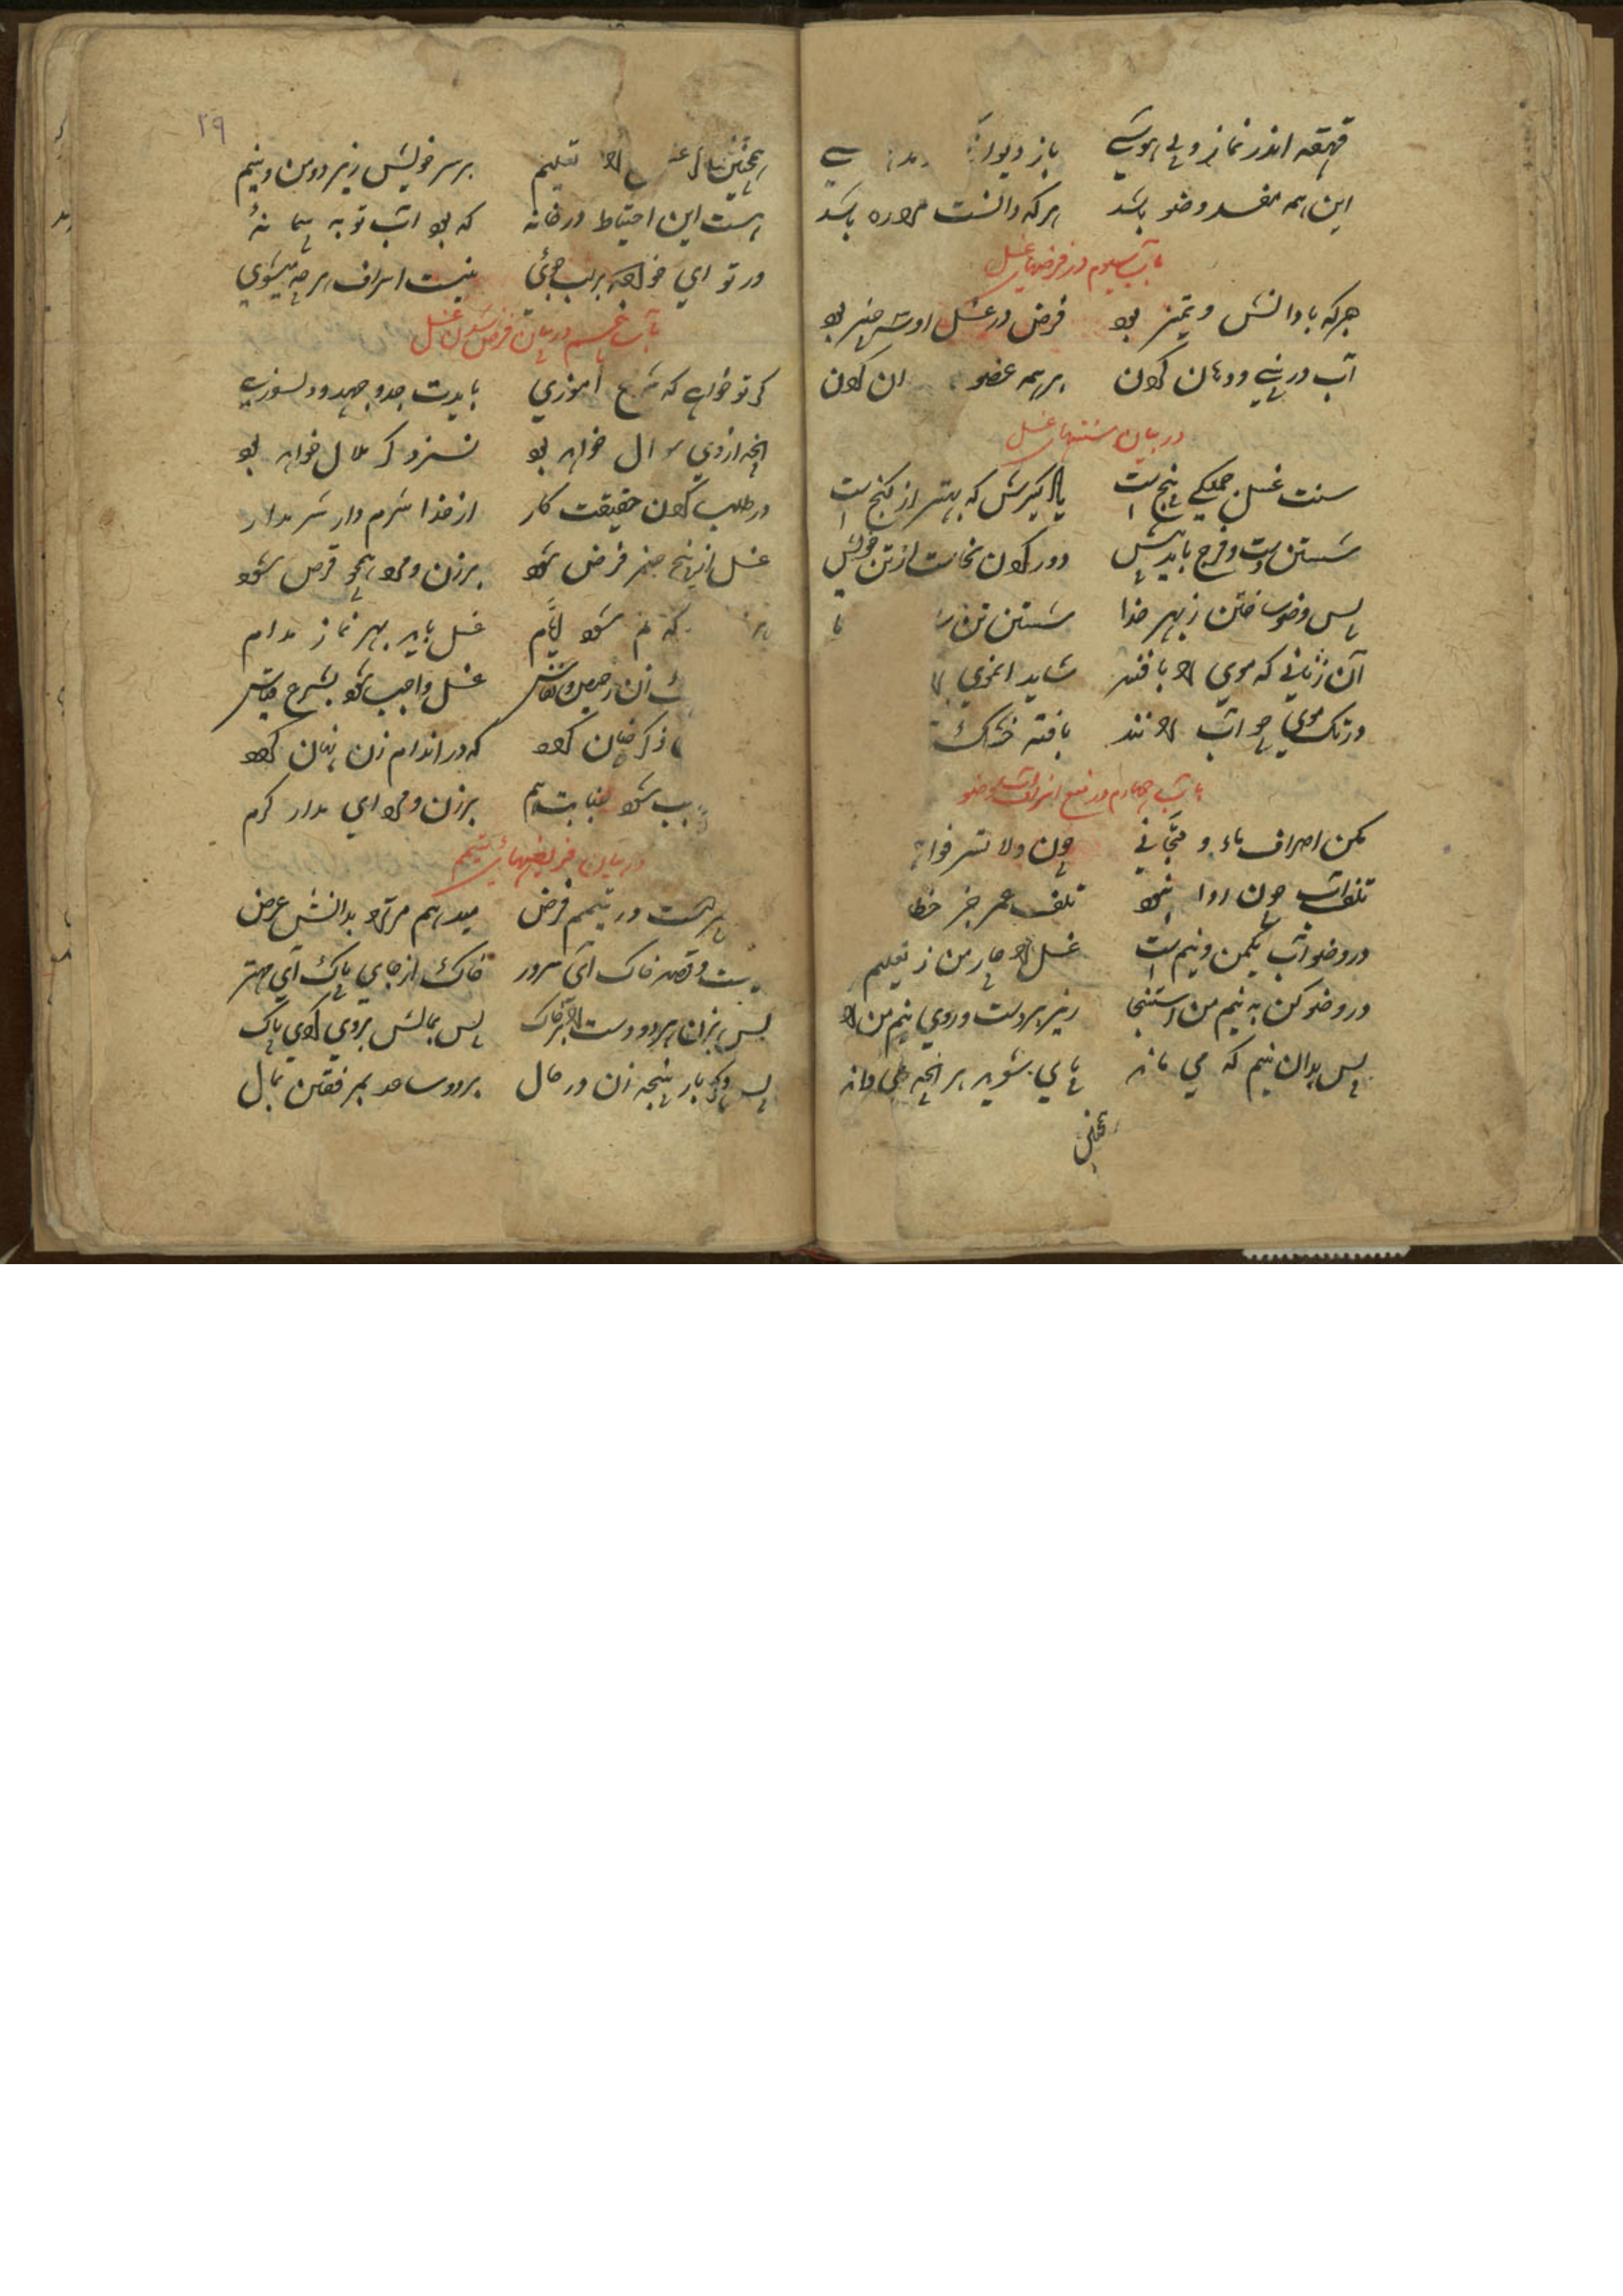 قهقهه اندر نماز و بی هوشی باز دیوانه
این همه مفسد وضو باشد هر که دانست مرد ره باشد
باب سیوم در فرضهای غسل
هر که با دانش و تمیز بود فرض در غسل او سه چیز بود
آب در بینی و دهان کردن بر همه عضو ان کردن
در بیان سنتهای غسل
سنت غسل جملگی پنج است یاد گیرش که بهتر از گنج است
شستن دست و فرج باید پیش دور کردن نجاست از تن خویش
پس وضو ساختن ز بهر خدا شستن تن
آن زنانی که موی را بافند شاید
ور تک موی چو آب را نند بافته خشک
باب چهارم در منع اسراف آب وضو
مکن اصراف ماء و مجانی چون ولا تسرفوا
تلف آب چون روا نبود تلف عمر جز خطا
در وضو آب یکمن و نیم است غسل را چار من ز تعلیم
در وضو کن به نیم من استنجا ریز بر دست و روی نیم من را
پس بدان نیم که می ماند پای بشوید هر انچه می داند
همچنین
۲۹
همچنین را تعلیم بر سر خویش ریز دو من و نیم
هست این احتیاط در خانه که بود آب تو به پیمانهٔ
ور تو ای خواجه بر لب جوئی نیست اسراف هر چه میشوی
باب پنجم در بیان فرض شدن غسل
گر تو خواهی که شرع آموزی بایدت جد و جهد و دلسوزی
انچه از وی سوال خواهد بود نسزد گر ملال خواهد بود
در طلب کردن حقیقت کار از خدا شرم دار شرم مدار
غسل از پنج چیز فرض شود بر زن و مرد همچو قرض شود
که نم شود غسل باید بهر نماز مدام
زن ز حیض و نفاس غسل واجب شود بشرع قیاس
ذکر چنان گردد که در اندام زن نهان گردد
شود جنابت هم بر زن و مرد ای مدار کرم
در بیان فریضهای تیمم
هست در تیمم فرض میدهم مر ترا بدانش عرض
نیت و قصد خاک ای سرور خاک از جای پاک ای مهتر
پس بزن هر دو دست را بر خاک پس بمالش بروی کوی پاک
پس دگر بار پنجه زن در حال بر دو ساعد بمرفقین بمال